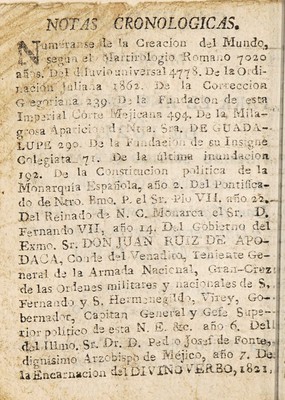 NOTAS CRONOLOGICAS.
Numéranse de la Creacion del Mundo,
segun el Martirologio Romano 7020
años. Del diluvio universal 4778. De la Ordi-
nacion Juliana 1862. De la Correccion
Gregoriana 239. De la Fundacion de esta
Imperial Corte Mejicana 494. De la Mila-
grosa Aparicion de Ntra. Sra. DE GUADA-
LUPE 290. De la Fundacion de su Insigne
Colegiata 71. De la última inundacion
192. De la Constitucion politica de la
Monarquia Española, año 2. Del Pontifica-
do de Ntro. Bmo. P. el Sr. Pio VII. año 22.
Del Reinado de N. C. Monarca el Sr. D.
Fernando VII, año 14. Del Gobierno del
Exmo. Sr. DON JUAN RUIZ DE APO-
DACA, Conde del Venadito, Teniente Ge-
neral de la Armada Nacional, Gran-Cruz
de las Ordenes militares y nacionales de S.
Fernando y S. Hermenegildo, Virey, Go-
bernador, Capitan General y Gefe Supe-
rior politico de esta N. E. &c. año 6. Del
del Illmo. Sr. Dr. D. Pedro Josef de Fonte,
dignisimo Arzobispo de Méjico, año 7. De
la Encarnacion del DIVINO VERBO, 1821.